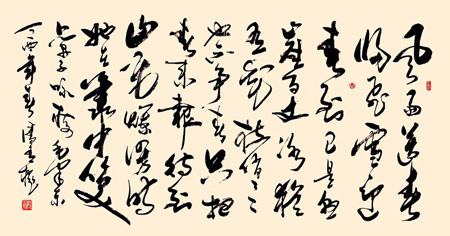 风雨送春
归飞雪迎
春到已是悬
崖百丈冰犹
有花枝俏〻
也不争春只把
春来报待到
山花烂漫时
她在丛中笑
卜算子咏梅毛泽东
丁酉年春